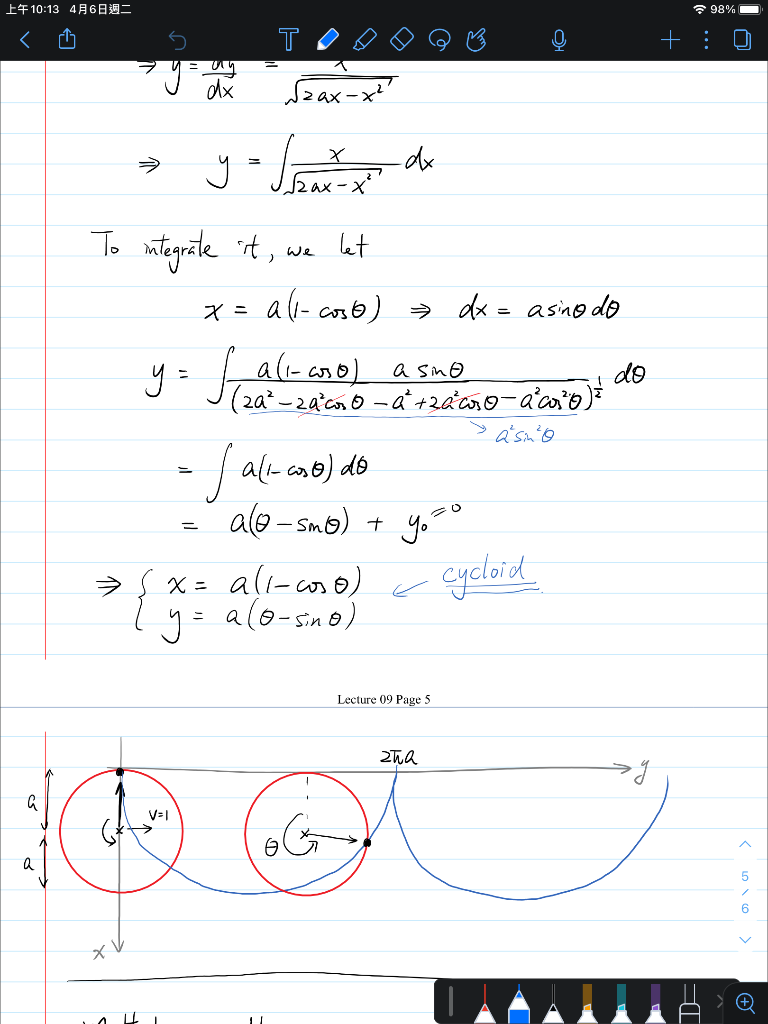 上午10:13 4月6日週二
98%
T
⇒ y = dy/dx = x/√(2ax-x²)
⇒ y = ∫ x/√(2ax-x²) dx
To integrate it, we let
x = a(1-cosθ) ⇒ dx = a sinθ dθ
y = ∫ a(1-cosθ) a sinθ / (2a²-2a²cosθ-a²+2a²cosθ-a²cos²θ)^½ dθ
→ a²sin²θ
= ∫ a(1-cosθ) dθ
= a(θ-sinθ) + y₀ = 0
⇒ { x = a(1-cosθ) ← cycloid
y = a(θ-sinθ)
Lecture 09 Page 5
2πa
y
a
v=1
θ
a
x
5
/
6